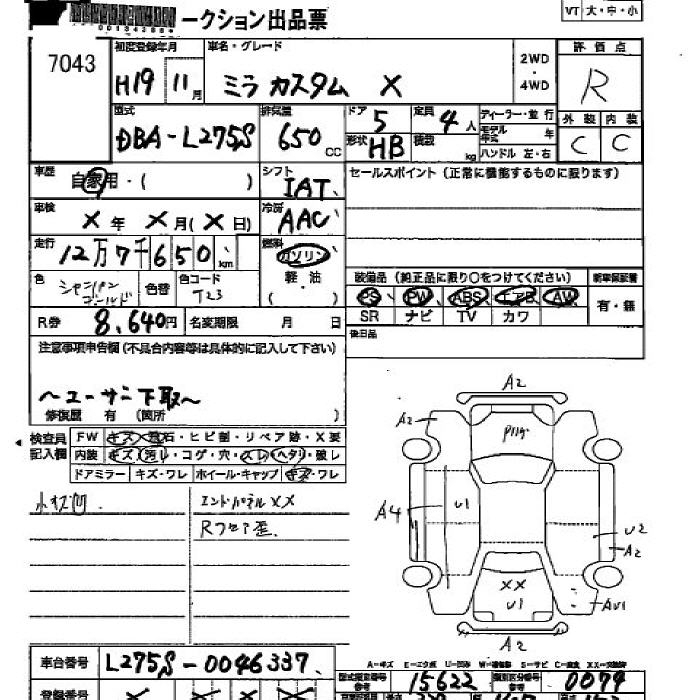 ークション出品票
VT 大・中・小
7043
初度登録年月 車名・グレード
H19 11月 ミラ カスタム X
2WD
・
4WD
評価点
R
外装 内装
C C
型式 排気量 ドア 定員
DBA-L275S 650CC 5 4人
形状 HB 積載 kg
ディーラー・並行
モデル年式 年
ハンドル 左・右
車歴 自家用・( )
シフト IAT
セールスポイント(正常に機能するものに限ります)
車検 X年 X月(X日)
冷房 AAC
走行 12万7千650km
燃料 ガソリン
軽・油
( )
色 シャンパンゴールド 色替 色コード T23
装備品(純正品に限り○をつけてください) 新車保証書
PS PW ABS エアB AW 有・無
SR ナビ TV カワ
R券 8,640円 名変期限 月 日
後日品
注意事項申告欄(不具合内容等は具体的に記入して下さい)
~ユーザー下取~
修復歴 有 (箇所 )
検査員記入欄
FW キズ・飛石・ヒビ割・リペア跡・X要
内装 キズ・汚れ・コゲ・穴・スレ・ヘタリ・破レ
ドアミラー キズ・ワレ ホイール・キャップ キズ・ワレ
小キズ凹 エンドパネルXX
A2
A2
A4
U1
U2
A2
XX
U1
AU1
A2
A-キズ E-エクボ U-凹み W-補修跡 S-サビ C-腐食 XX-交換済
車台番号 L275S-0046337
型式指定番号 15622 類別区分番号 0074
登録番号